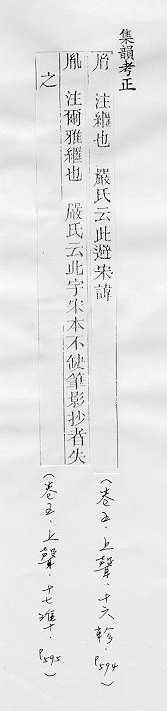 集韻考正
𦙍 注繼也 嚴氏云此避宋諱
胤 注爾雅繼也 嚴氏云此字宋本不缺筆影抄者失
之
(卷五．上聲．十六軫．P594)
(卷五．上聲．十七準．P595)